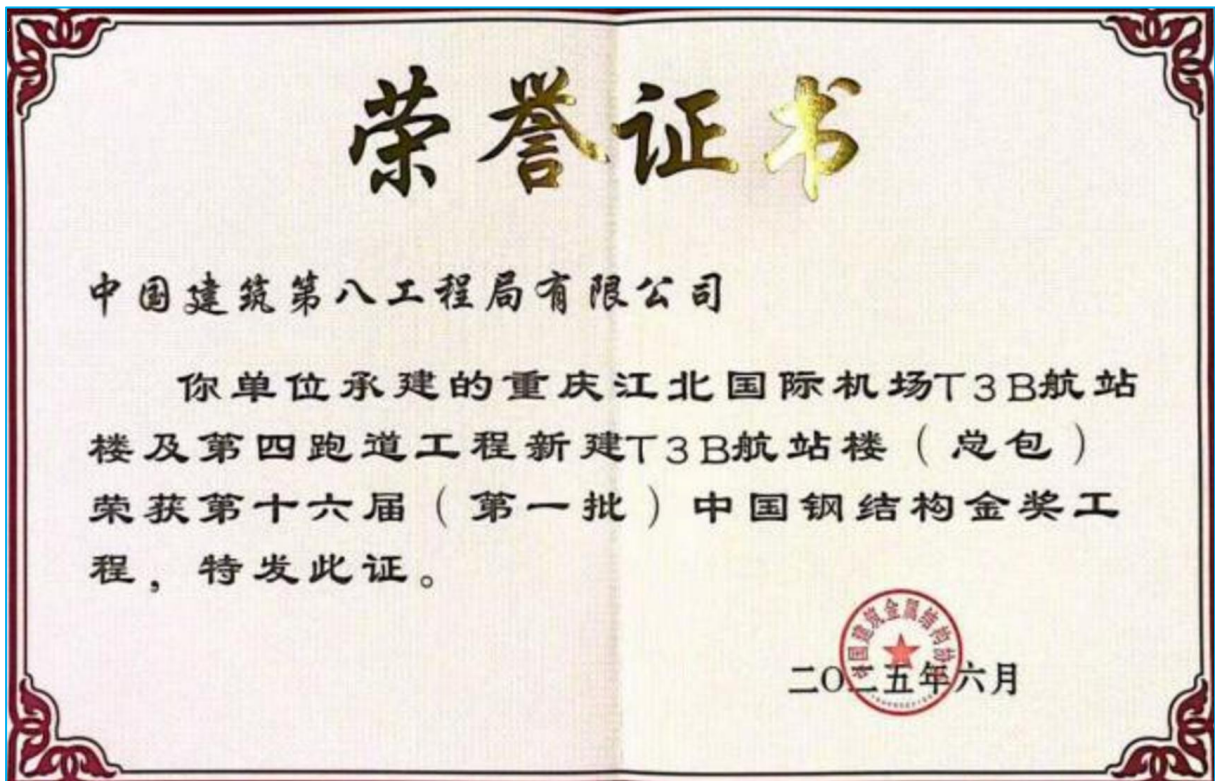 荣誉证书
中国建筑第八工程局有限公司
你单位承建的重庆江北国际机场T3B航站
楼及第四跑道工程新建T3B航站楼（总包）
荣获第十六届（第一批）中国钢结构金奖工
程，特发此证。
中国建筑金属结构协会
二〇二五年六月